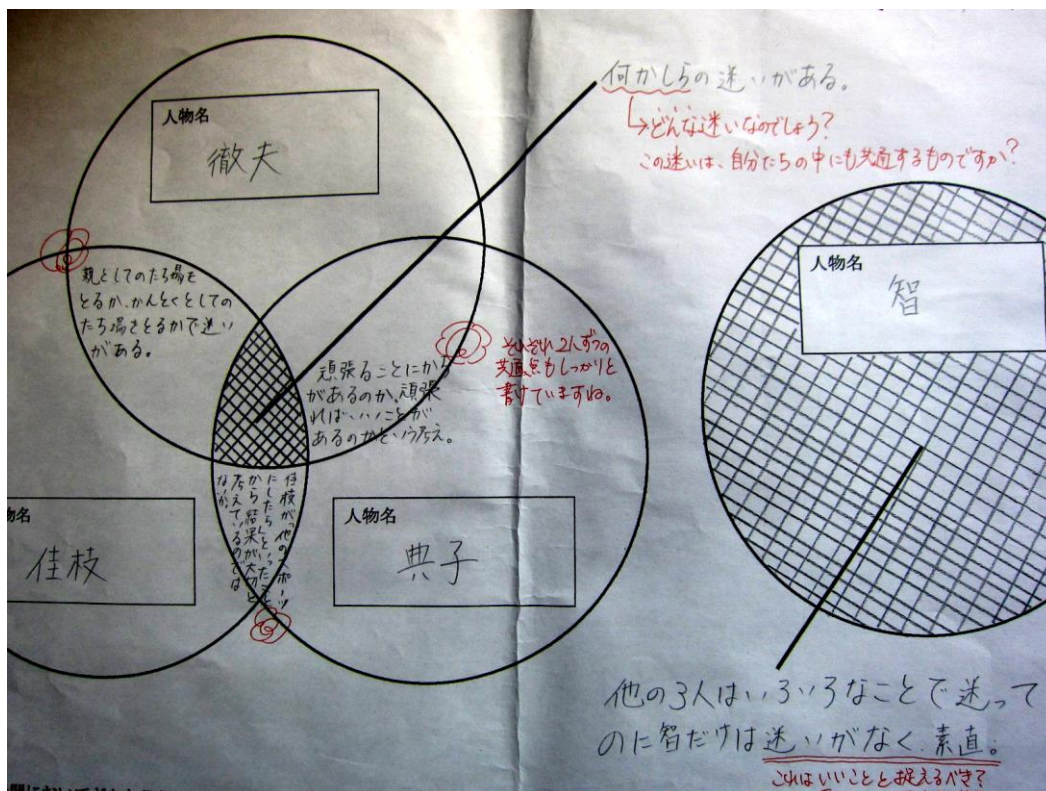 人物名
徹夫
何かしらの迷いがある。
↳どんな迷いなのでしょう?
この迷いは、自分たちの中にも共通するものですか?
親としてのたち場を
とるか、かんとくとしての
たち場をとるかで迷い
がある。
頑張ることにかち
があるのか。頑張
ればいいことが
あるのかという考え。
それぞれ2人ずつの
共通点もしっかりと
書けていますね。
佳枝が「他のスポーツ
にしたら」といったこと
から結果が大切と
考えているのでは
ないか。
物名
佳枝
人物名
典子
人物名
智
他の3人はいろいろなことで迷って
のに智だけは迷いがなく、素直。
これはいいことと捉えるべき?